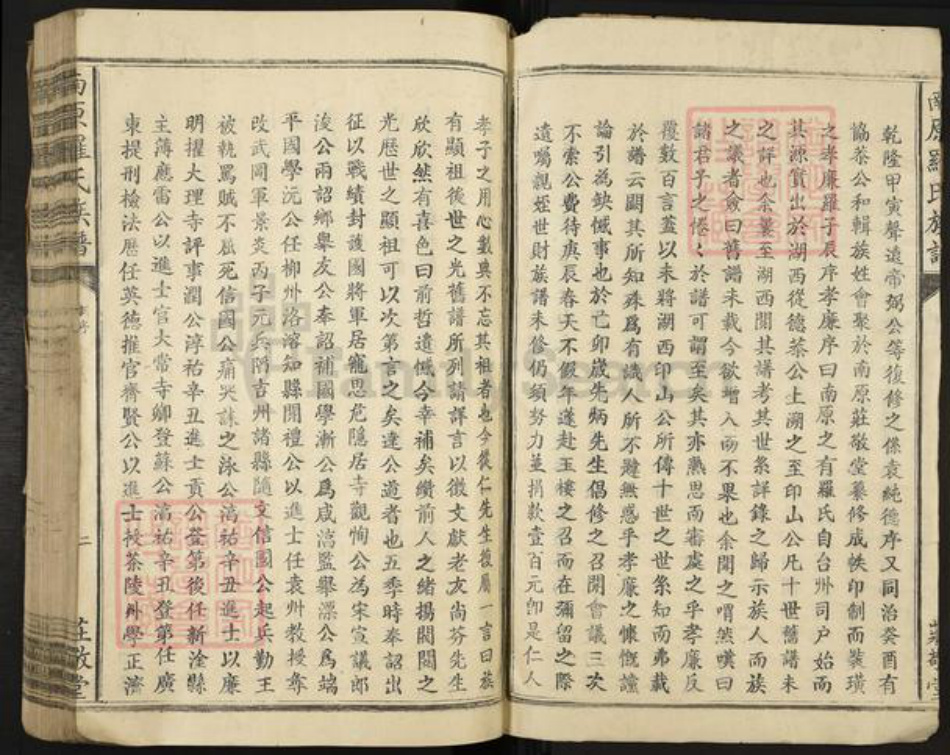 南原羅氏族譜
莊敬堂
乾隆甲寅聲遠帝弼公等復修之係袁純德序又同治癸酉有
協恭公和輯族姓會聚於南原莊敬堂纂修成帙印制而裝璜
之孝廉羅子辰序孝廉序曰南原之有羅氏自台州司户始而
其源實出於湖西從德恭公上溯之至印山公凡十世舊譜未
之詳也余曩至湖西閱其譜考其世系詳錄之歸示族人而族
之議者僉曰舊譜未載今欲增入而不果也余聞之喟然嘆曰
諸君子之惓惓於譜可謂至矣其亦熟思而審處之乎孝廉反
覆數百言蓋以未將湖西印山公所傳十世之世系知而弗載
於譜云闕其所知殊爲有識人所不韙無惑乎孝廉之慷慨諠
論引為缺憾事也於己卯歲先炳先生倡修之召開會議三次
不索公費待庚辰春天不假年遂赴玉樓之召而在彌留之際
遺囑親姪世財族譜未修仍須努力並捐款壹百元卽是仁人
孝子之用心數典不忘其祖者也今從仁先生復屬一言曰族
有顯祖後世之光舊譜所列請詳言以徵文獻老友尚芬先生
欣欣然有喜色曰前哲遺憾今幸補矣纘前人之緒揚閥閱之
光歷世之顯祖可以次第言之矣達公道者也五季時奉詔出
征以戰績封護國將軍居寵思危隱居寺觀恂公為宋宣議郎
浚公兩詔鄉舉友公奉詔補國學漸公為咸淳監舉漂公爲端
平國學沅公任柳州洛溶知縣開禮公以進士任袁州教授奪
改武岡軍景炎丙子元兵陷吉州諸縣隨文信國公起兵勤王
被執罵賊不屈死信國公痛哭誄之泳公淳祐辛丑進士以廉
明擢大理寺評事潤公淳祐辛丑進士貢公登第後任新淦縣
主薄應雷公以進士官大常寺卿登蘇公淳祐辛丑登第任廣
東提刑檢法歷任英德推官齊賢公以進士授茶陵州學正濟
南原羅氏族譜
二
莊敬堂
FamilySearch